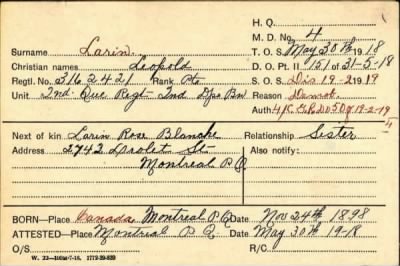 H. Q.
M. D. No. 4
Surname Larin T. O. S. May 30th 1918
Christian names Leopold D. O. Pt. II 151 of 31-5-18
Regtl. No. 3162421 Rank Pte S. O. S. Dis 19-2-1919
Unit 2nd. Que Regt - 2nd Dpo Bn Reason Demob.
Auth 4/C.G.R. DO 50 of 19-2-19
Next of kin Larin Rose Blanche Relationship Sister
Address 2742 Drolet St. Also notify:
Montreal P Q.
BORN—Place Canada, Montreal P Q Date Nov 24th 1898
ATTESTED—Place Montreal P Q Date May 30th 1918
O/S R/C
1772-39-839